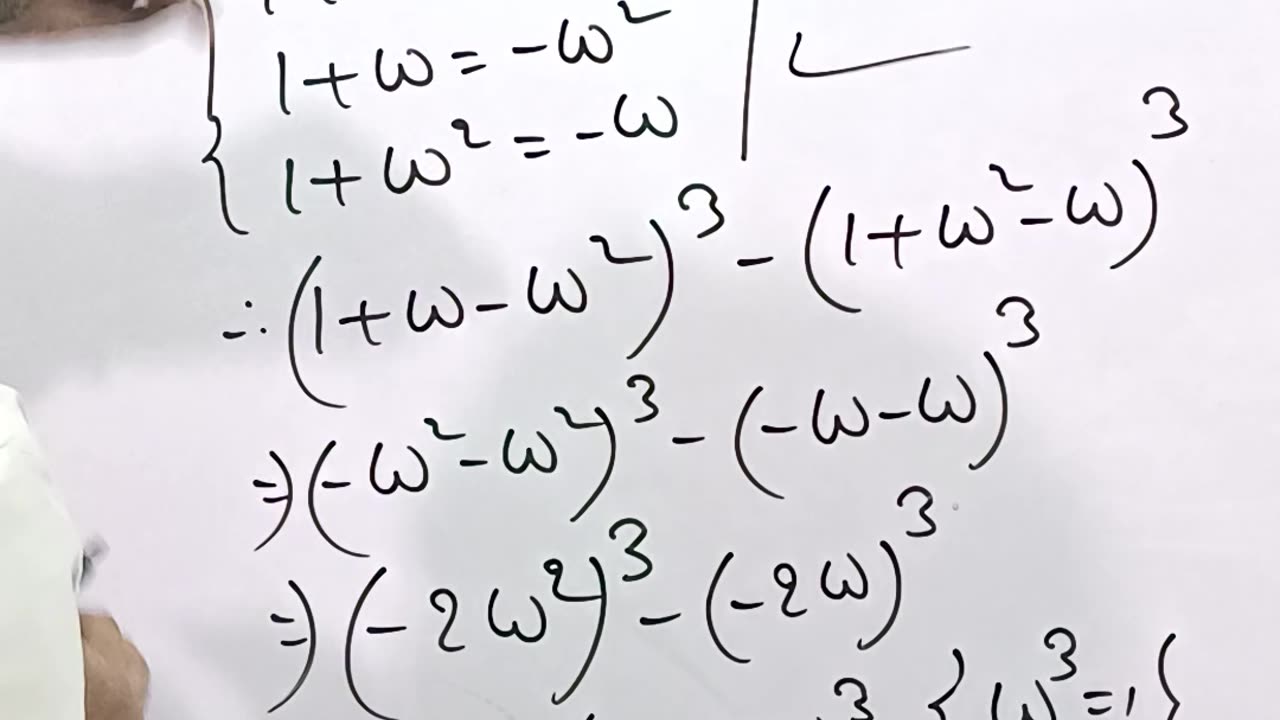 1+ω = -ω²
1+ω² = -ω
∴ (1+ω-ω²)³ - (1+ω²-ω)³
⇒ (-ω²-ω²)³ - (-ω-ω)³
⇒ (-2ω²)³ - (-2ω)³
3 { ω³=1 }